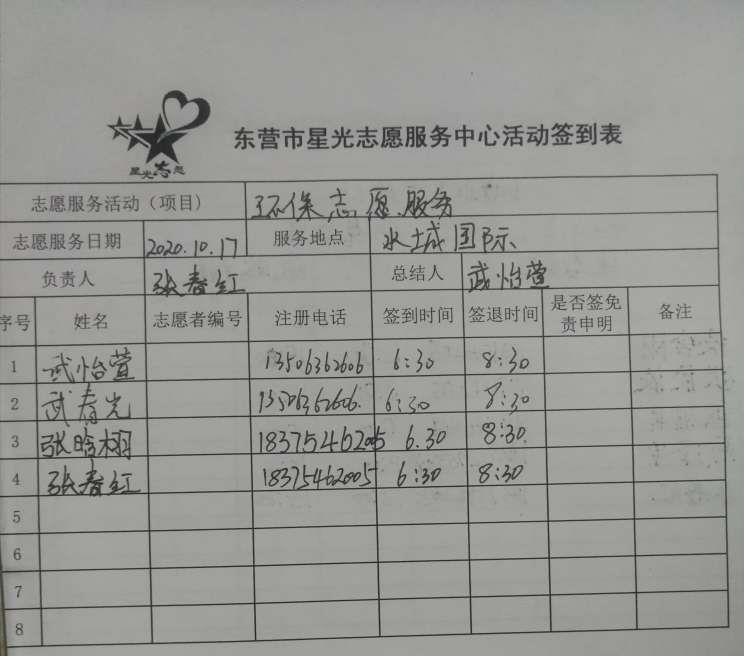 星光志愿
东营市星光志愿服务中心活动签到表
志愿服务活动（项目） 环保志愿服务
志愿服务日期 2020.10.17 服务地点 水城国际
负责人 张春红 总结人 武怡萱
序号 姓名 志愿者编号 注册电话 签到时间 签退时间 是否签免责申明 备注
1 武怡萱 13506362606 6:30 8:30
2 武春光 13506362606. 6:30 8:30
3 张晗栩 18375462005 6.30 8:30
4 张春红 18375462005 6:30 8:30
5
6
7
8